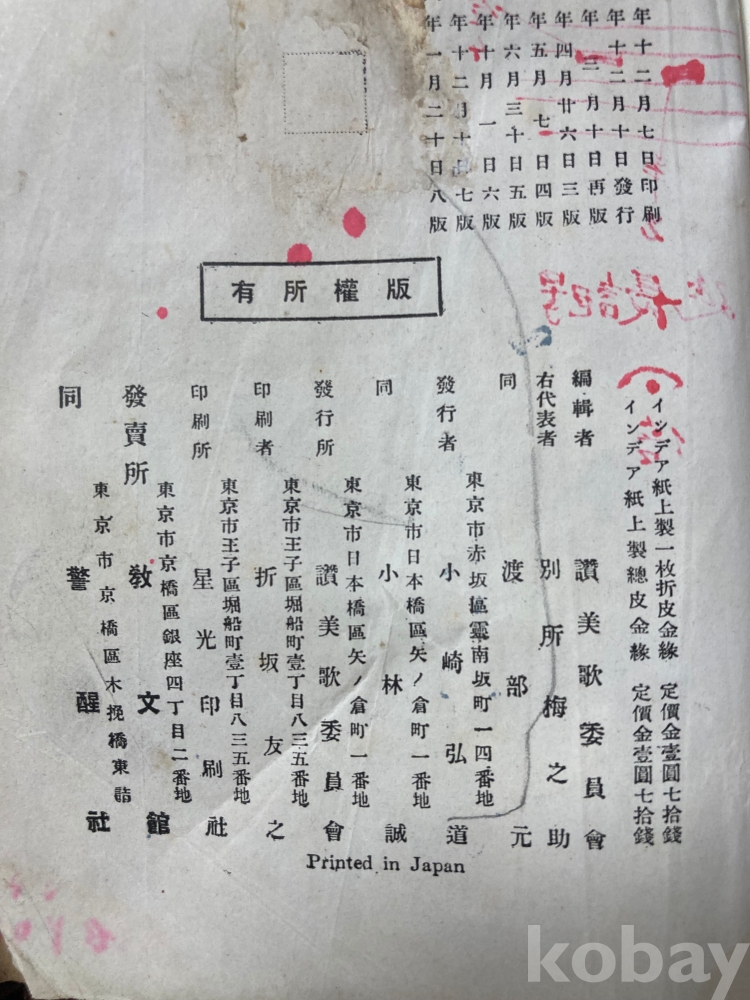 年十二月七日印刷
年十二月十日發行
年三月十日再版
年四月廿六日三版
年五月七日四版
年六月三十日五版
年十月一日六版
年十二月十日七版
年一月二十日八版
版權所有
インデア紙上製一枚折皮金緣 定價金壹圓七拾錢
インデア紙上製總皮金緣 定價金壹圓七拾錢
編輯者 讚美歌委員會
右代表者 別所梅之助
同 渡部元
東京市赤坂區靈南坂町一四番地
發行者 小崎弘道
東京市日本橋區矢ノ倉町一番地
同 小林誠
東京市日本橋區矢ノ倉町一番地
發行所 讚美歌委員會
東京市王子區堀船町壹丁目八三五番地
印刷者 折坂友之
東京市王子區堀船町壹丁目八三五番地
印刷所 星光印刷社
東京市京橋區銀座四丁目二番地
發賣所 敎文館
東京市京橋區木挽橋東詰
同 警醒社
Printed in Japan
kobay